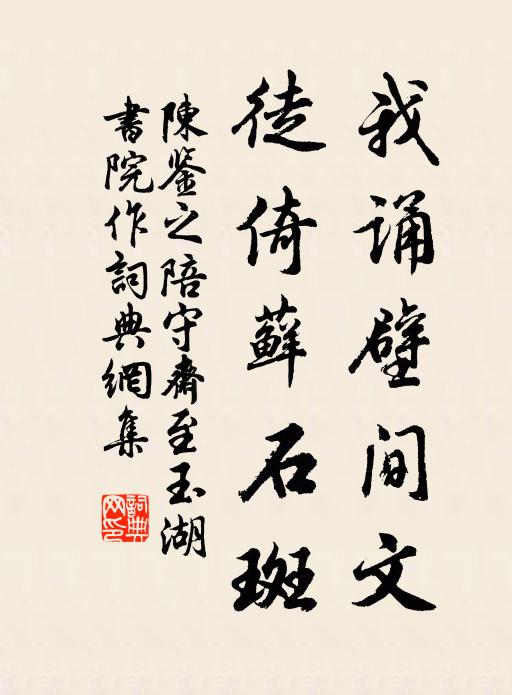 我誦壁间文
徒倚蘚石斑
陳鉴之陪守齋至玉湖
書院作詞典網集
詞典网印